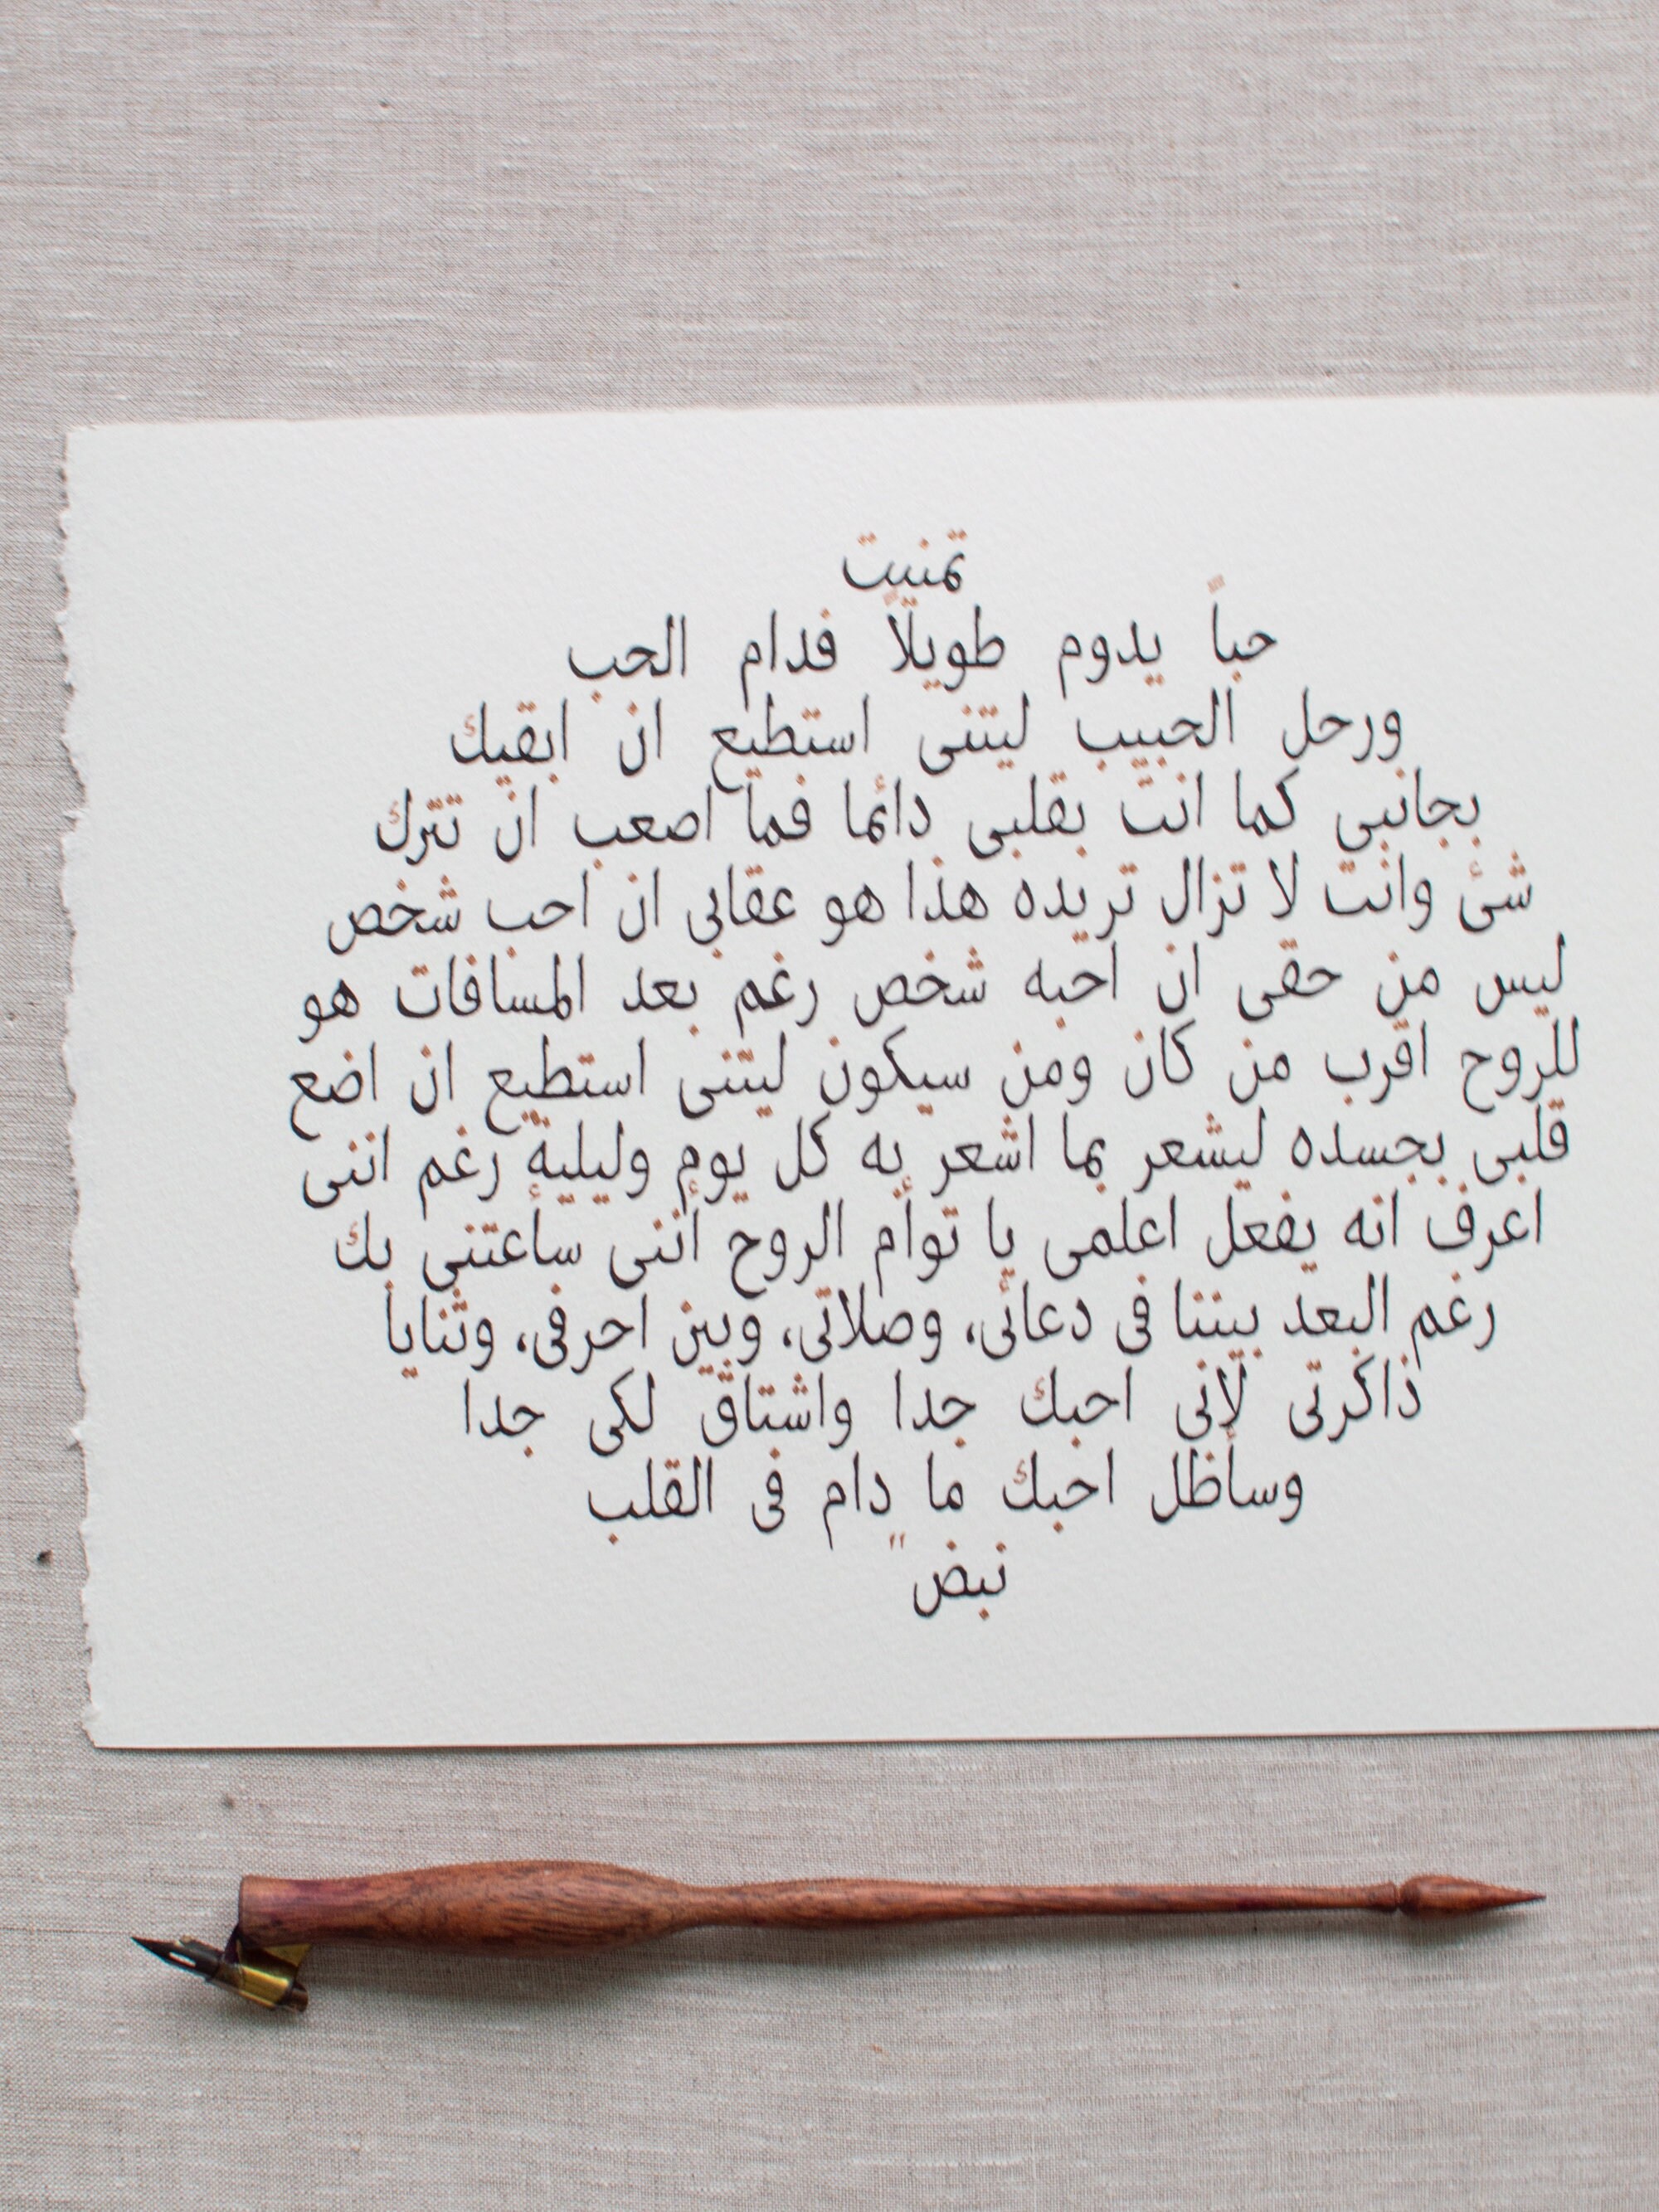 تمنيت
حباً يدوم طويلاً فدام الحب
ورحل الحبيب ليتنى استطيع ان ابقيك
بجانبي كما انت بقلبى دائما فما اصعب ان تترك
شئ وانت لا تزال تريده هذا هو عقابي ان احب شخص
ليس من حقى ان احبه شخص رغم بعد المسافات هو
للروح اقرب من كان ومن سيكون ليتنى استطيع ان اضع
قلبى بجسده ليشعر بما اشعر به كل يوم وليلية رغم اننى
اعرف انه يفعل اعلمى يا توأم الروح إننى سأعتنى بك
رغم البعد بيننا فى دعائى، وصلاتى، وبين احرفى، وثنايا
ذاكرتى لإنى احبك جدا واشتاق لكى جدا
وسأظل احبك ما دام فى القلب
نبض"